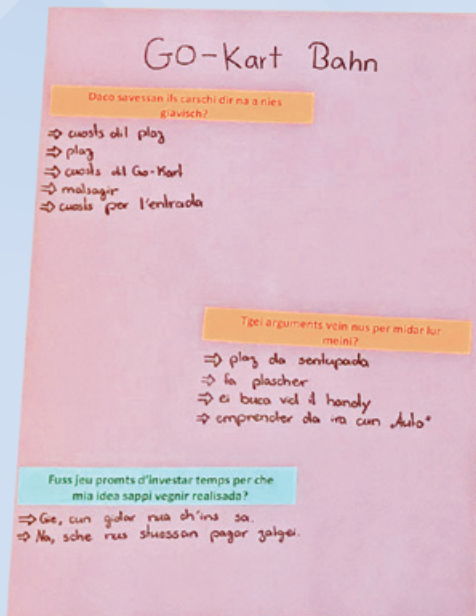 Go-Kart Bahn
Daco savessan ils carschi dir na a nies
giavisch?
⇒ cuosts dil plaz
⇒ plaz
⇒ cuosts dil Go-Kart
⇒ malsagir
⇒ cuosts per l'entrada
Tgei arguments vein nus per midar lur
meini?
⇒ plaz da sentupada
⇒ fa plascher
⇒ ei buca vid il handy
⇒ emprender da ira cun „Auto"
Fuss jeu promts d'investar temps per che
mia idea sappi vegnir realisada?
⇒ Ge, cun gidar nua ch'ins sa.
⇒ Na, sche nus stuessan pagar zatgei.